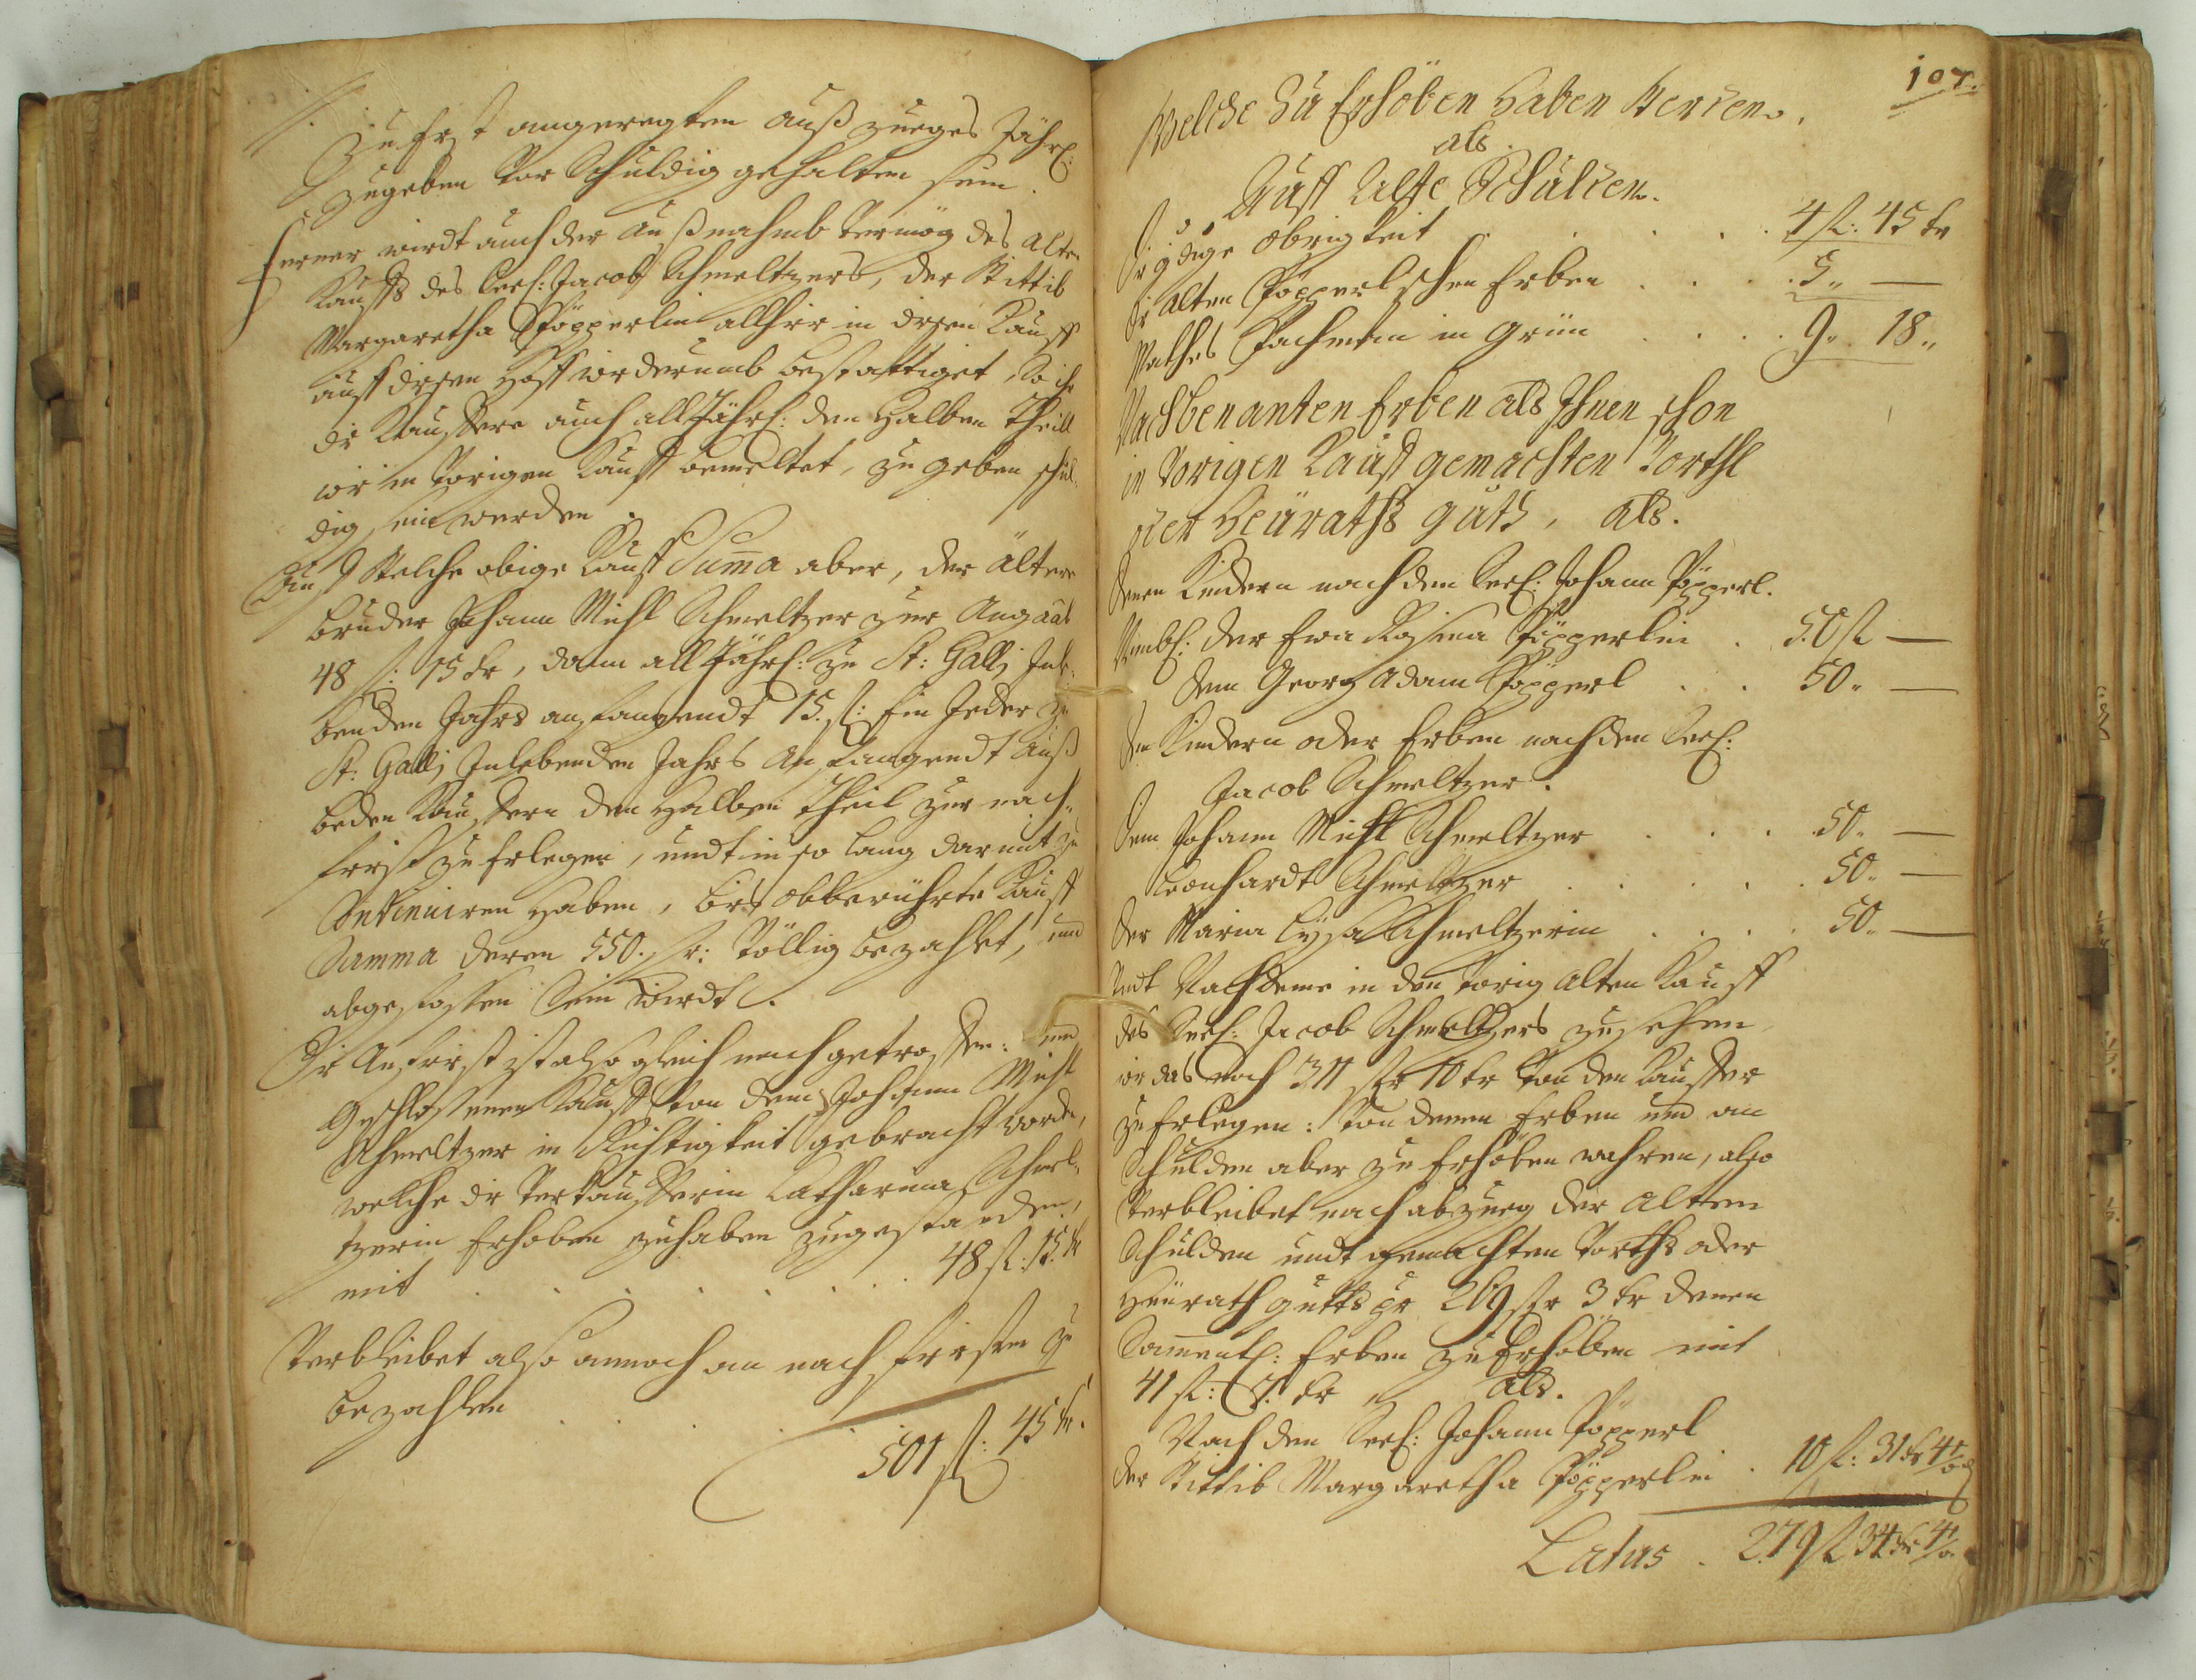 Zu Erst angeregten Außzueges Jährl:
zugeben vor Schuldig gehalten sein.
Ferner wirdt auch der Außnahmb vermög des alten
Kauffs des Seel: Jacob Schmeltzers, der Wittib
Margaretha Pöpperlin allhier in diesen Kauff
auff diesen Hoff widerumb bestättiget, So ihr
die Kauffere auch all Jährl: den Halben Theill
wie in Vorigen Kauff vermeltet, zu geben schul-
dig sein werden.
Auf Welche obige Kauff Suma aber, der Ältere
Bruder Johann Michl Schmeltzer zur Angaab
48 fl: 15 kr, dann all Jährl: zu St: Gallj Inle-
benden Jahrs anfangendt 15. fl: Ein Jeder zu
St: Gallj Inlebenden Jahrs Anfangendt Auß
beden Kauffern den Halben Theil zur nach-
frist zu Erlegen, undt in so lang darmit zu
Continuiren Haben, bis obberührte Kauff
Summa deren 550. fl: Völlig bezahlet, und
abgestossen Sein wirdt.
Die Anfrist ist also gleich nach getroffen: und
Geschlossenen Kauff von dem Johann Michl
Schmeltzer in Richtigkeit gebracht worden,
welche die Verkaufferin Catharina Schmel-
tzerin Erhoben zuhaben zugestanden,
mit . . . . . . 48 fl: 15 kr
Verbleibet also annoch an nach fristen zu
bezahlen . . . .
501 fl: 45 kr.
107.
Welche Zu Erhöben Haben Werden.
als.
Auff Alte Schulden.
Gndige Obrigkeit . . . . 4 fl: 45 kr
Die alten Pöpperlschen Erben . . . 5 „ —
Mathes Pachmann in Grün . . . . 9 „ 18 „
Nachbenanten Erben als Ihnen schon
in Vorigen Kauff gemachten Vorthl
oder Heüraths guth, als.
Denen Kindern nach dem Seel: Johann Pöpperl.
Nembl: der Eva Rosina Pöpperlin . 50 fl —
dem Georg Adam Pöpperl . . . 50 „ —
Den Kindern oder Erben nach den Seel:
Jacob Schmeltzer.
Dem Johann Michl Schmeltzer . . . . 50 „ —
Leonhardt Schmeltzer . . . . . 50 „ —
Der Maria Lysa Schmeltzerin . . . . 50 „ —
Undt Nachdeme in den Vorig Alten Kauff
des Seel: Jacob Schmeltzers zusehen
wie das noch 311 fl 10 kr Von den Kauffer
zu Erlegen: Von denen Erben und an
Schulden aber zu Erhöben wahren, also
Verbleibet nach abzueg der Alten
Schulden undt gemachten Vorthls oder
Heürath gutts per 269 fl 3 kr denen
Sammentl: Erben zu Erhöben mit
41 fl: 7. kr „ als.
Nach den Seel: Johann Pöpperl
der Wittib Margaretha Pöpperlin . 10 fl: 31 kr 4
Latus . 279 fl 34 kr 4